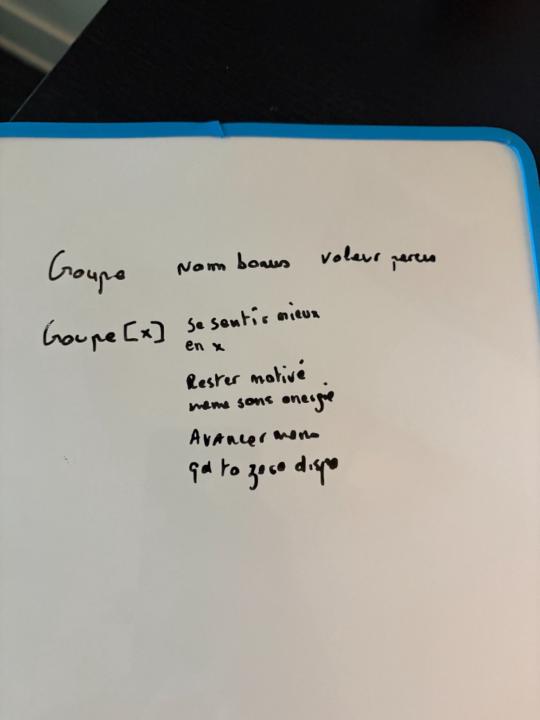 Groupe Nom bonus Valeur percu
Groupe [x] Se sentir mieux
en x
Rester motivé
meme sans energie
Avancer meme
qd to zero dispo